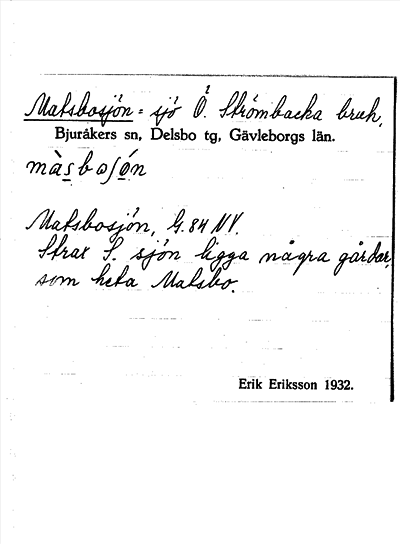 Matsbosjön = sjö Ö. Strömbacka bruk,
Bjuråkers sn, Delsbo tg, Gävleborgs län.
màsboʃón
Matsbosjön, G. 84 NV.
Strax S. sjön ligga några gårdar,
som heta Matsbo.
Erik Eriksson 1932.